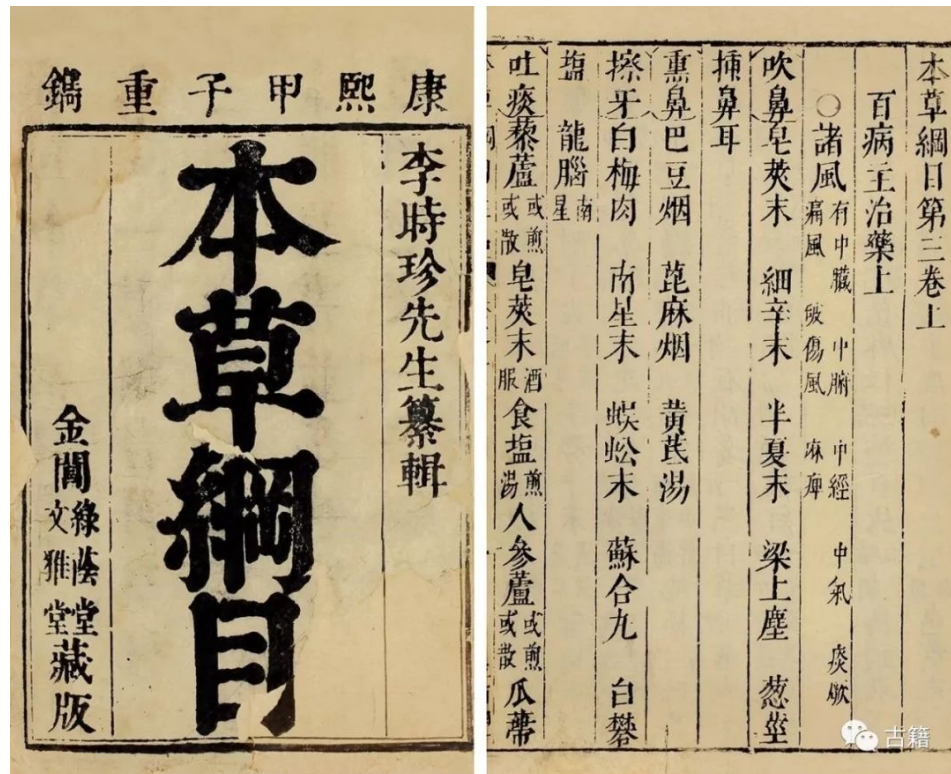 康熙甲子重鐫
李時珍先生纂輯
本草綱目
金閶綠蔭堂文雅堂藏版
本草綱目第三卷上
百病主治藥上
○諸風有中臟 中腑 中經 中氣 痰厥
痛風 破傷風 麻痺
吹鼻皂莢末 細辛末 半夏末 梁上塵 葱莖
插鼻耳
熏鼻巴豆烟 蓖麻烟 黃芪湯
擦牙白梅肉 南星末 蜈蚣末 蘇合丸 白礬
塩 龍腦南星
吐痰藜蘆或煎或散 皂莢末酒服 食塩煎湯 人參蘆或煎或散 瓜蒂
古籍